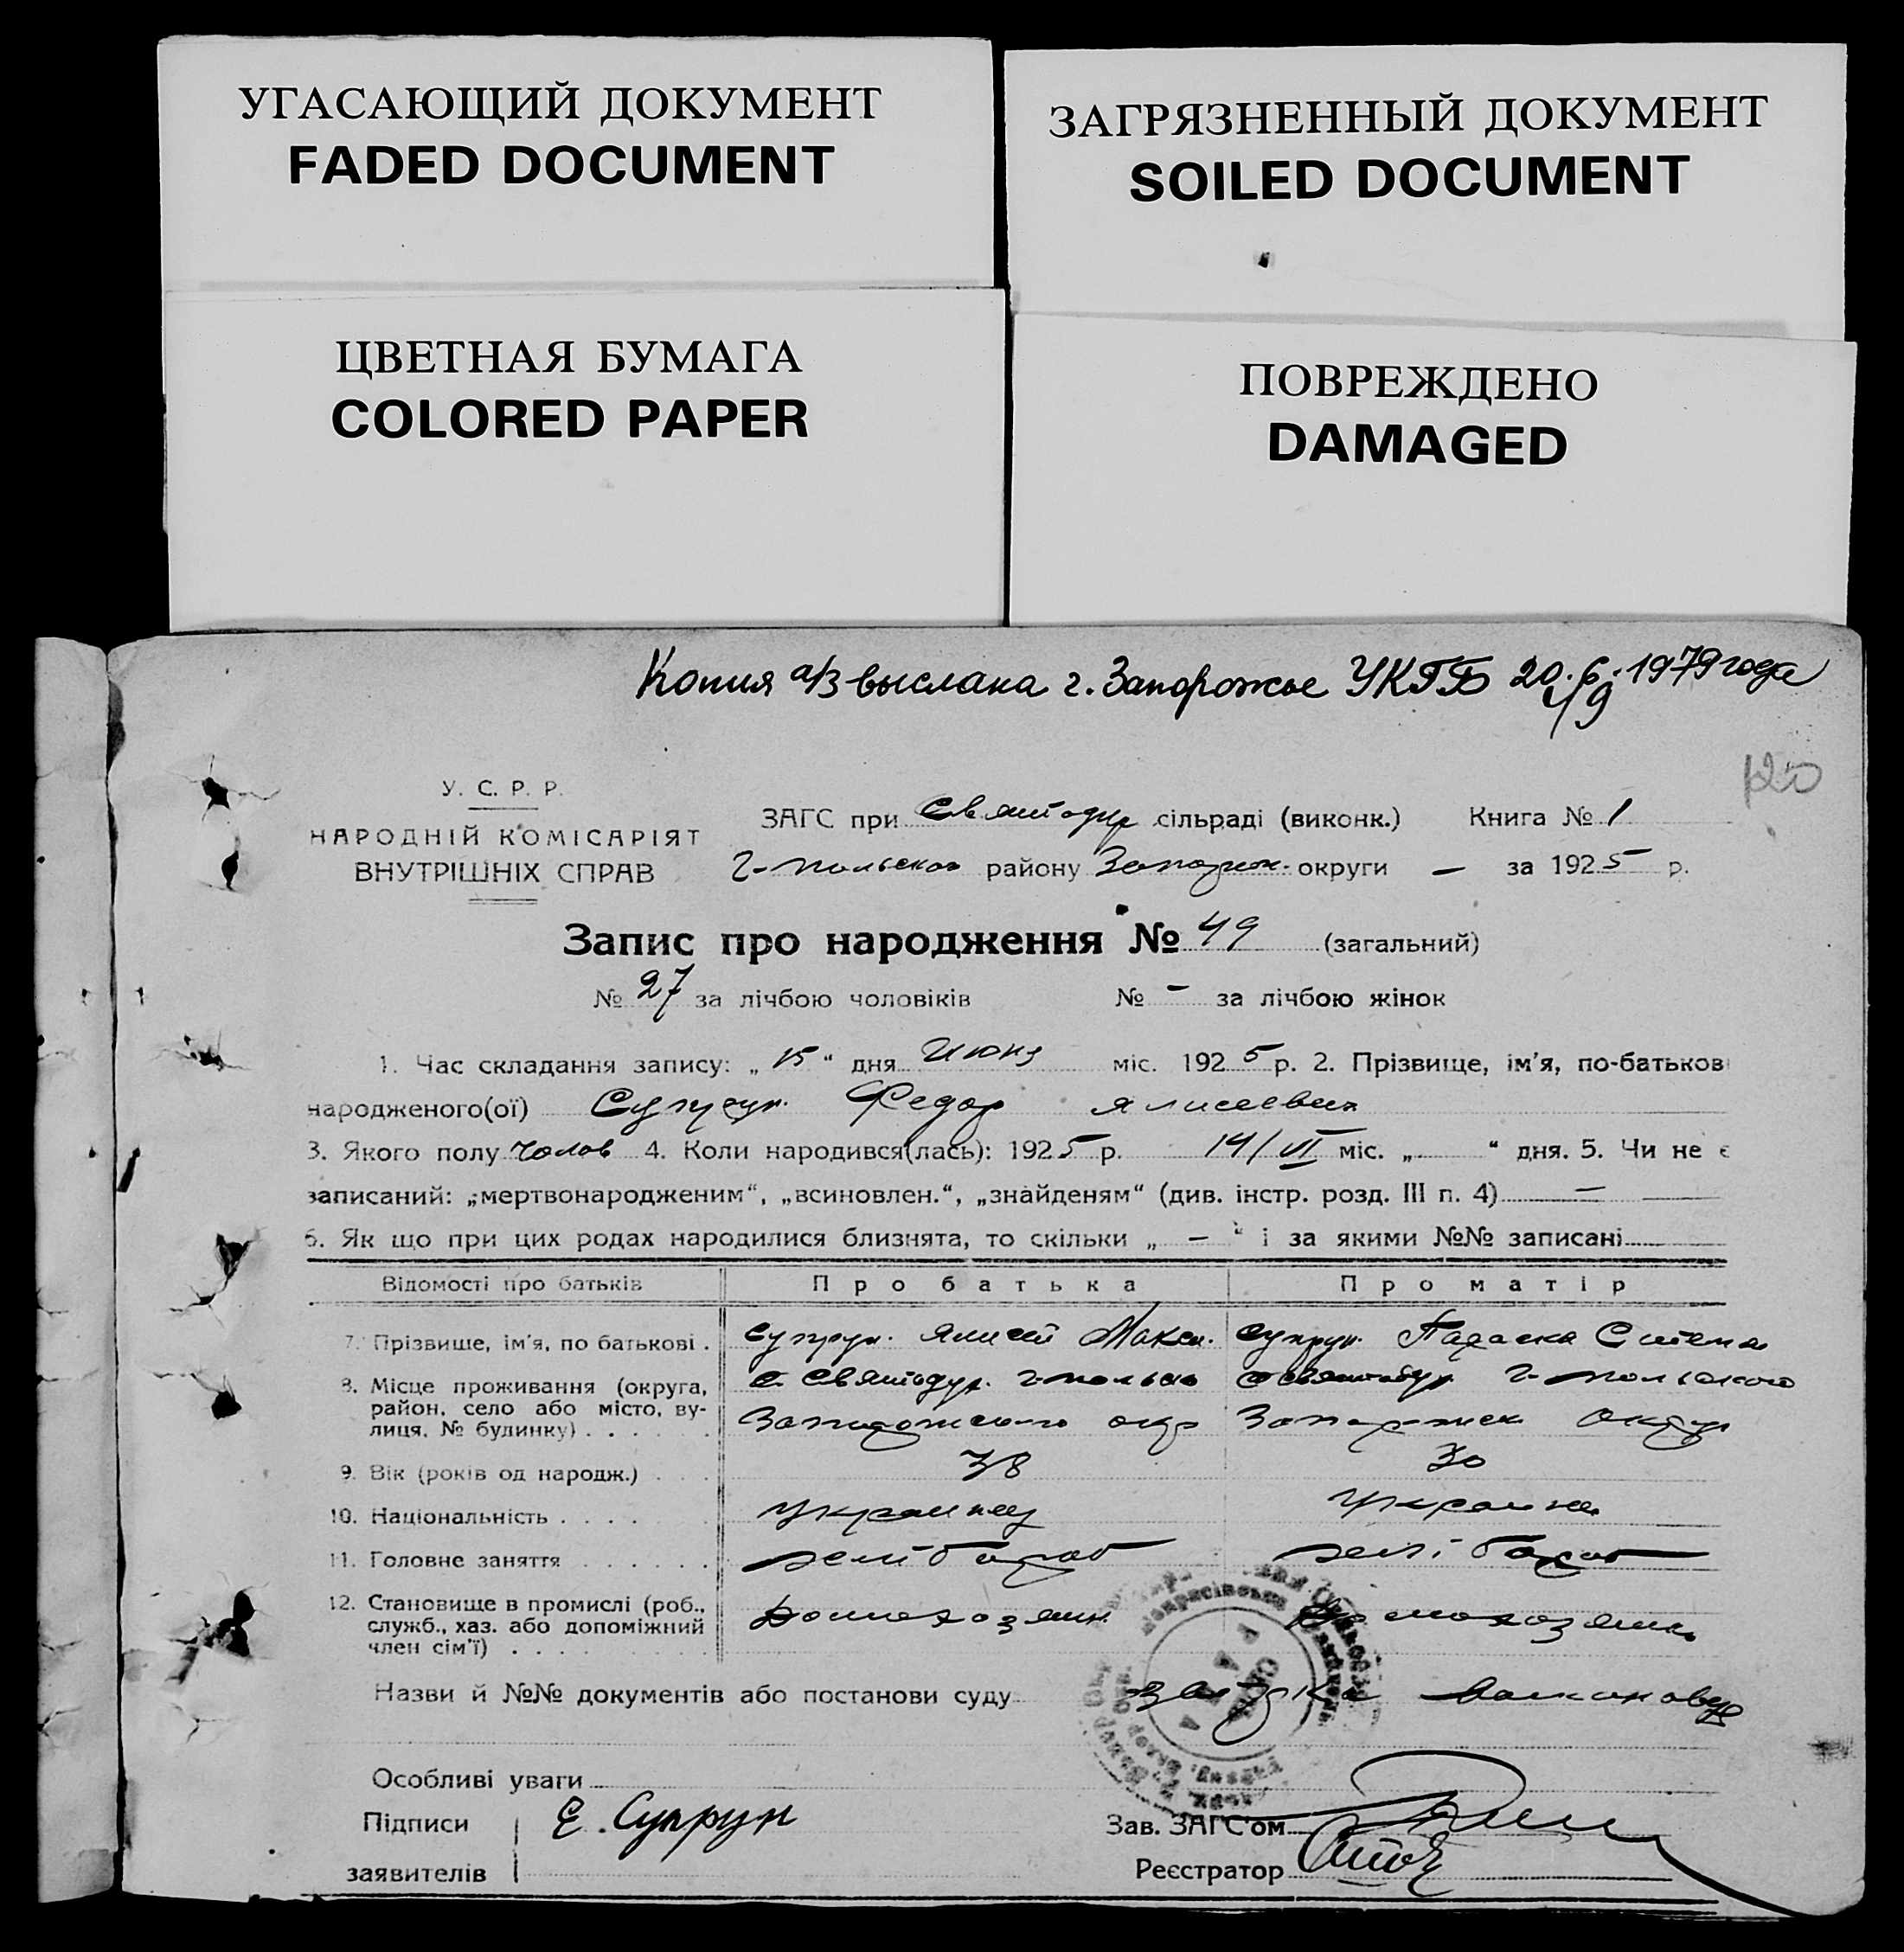 УГАСАЮЩИЙ ДОКУМЕНТ
FADED DOCUMENT
ЗАГРЯЗНЕННЫЙ ДОКУМЕНТ
SOILED DOCUMENT
ЦВЕТНАЯ БУМАГА
COLORED PAPER
ПОВРЕЖДЕНО
DAMAGED
Копия а/з выслана г. Запорожье УКГБ 20.6.1979 года
120
У. С. Р. Р.
НАРОДНІЙ КОМІСАРІЯТ
ВНУТРІШНІХ СПРАВ
ЗАГС при Святодур сільраді (виконк.) Книга № 1
Г-польского району Запорож. округи — за 1925 р.
Запис про народження № 49 (загальний)
№ 27 за лічбою чоловіків № - за лічбою жінок
1. Час складання запису: „ 15 “ дня Июня міс. 1925 р. 2. Прізвище, ім'я, по-батькові
народженого(ої) Супрун Федор Ялисеевич
3. Якого полу чолов 4. Коли народився(лась): 1925 р. 14/VI міс. „ “ дня. 5. Чи не є
записаний: „мертвонародженим“, „всиновлен.“, „знайденям“ (див. інстр. розд. III п. 4) —
6. Як що при цих родах народилися близнята, то скільки „ — “ і за якими №№ записані
Відомості про батьків Про батька Про матір
7. Прізвище, ім'я, по батькові . Супрун Ялисей Макси. Супрун Параска Степан
8. Місце проживання (округа, район, село або місто, вулиця, № будинку) с. Святодур. Г-польско с Святодур Г-польского
Запорожского окр Запорожск округ
9. Вік (років од народж.) 38 30
10. Національність украинец украинка
11. Головне заняття хлібороб хлібороб
12. Становище в промислі (роб., служб., хаз. або допоміжний член сім'ї) Домохозяин Домохозяин
Назви й №№ документів або постанови суду
Особливі уваги
Підписи Є. Супрун
заявителів
Зав. ЗАГС'ом
Реєстратор